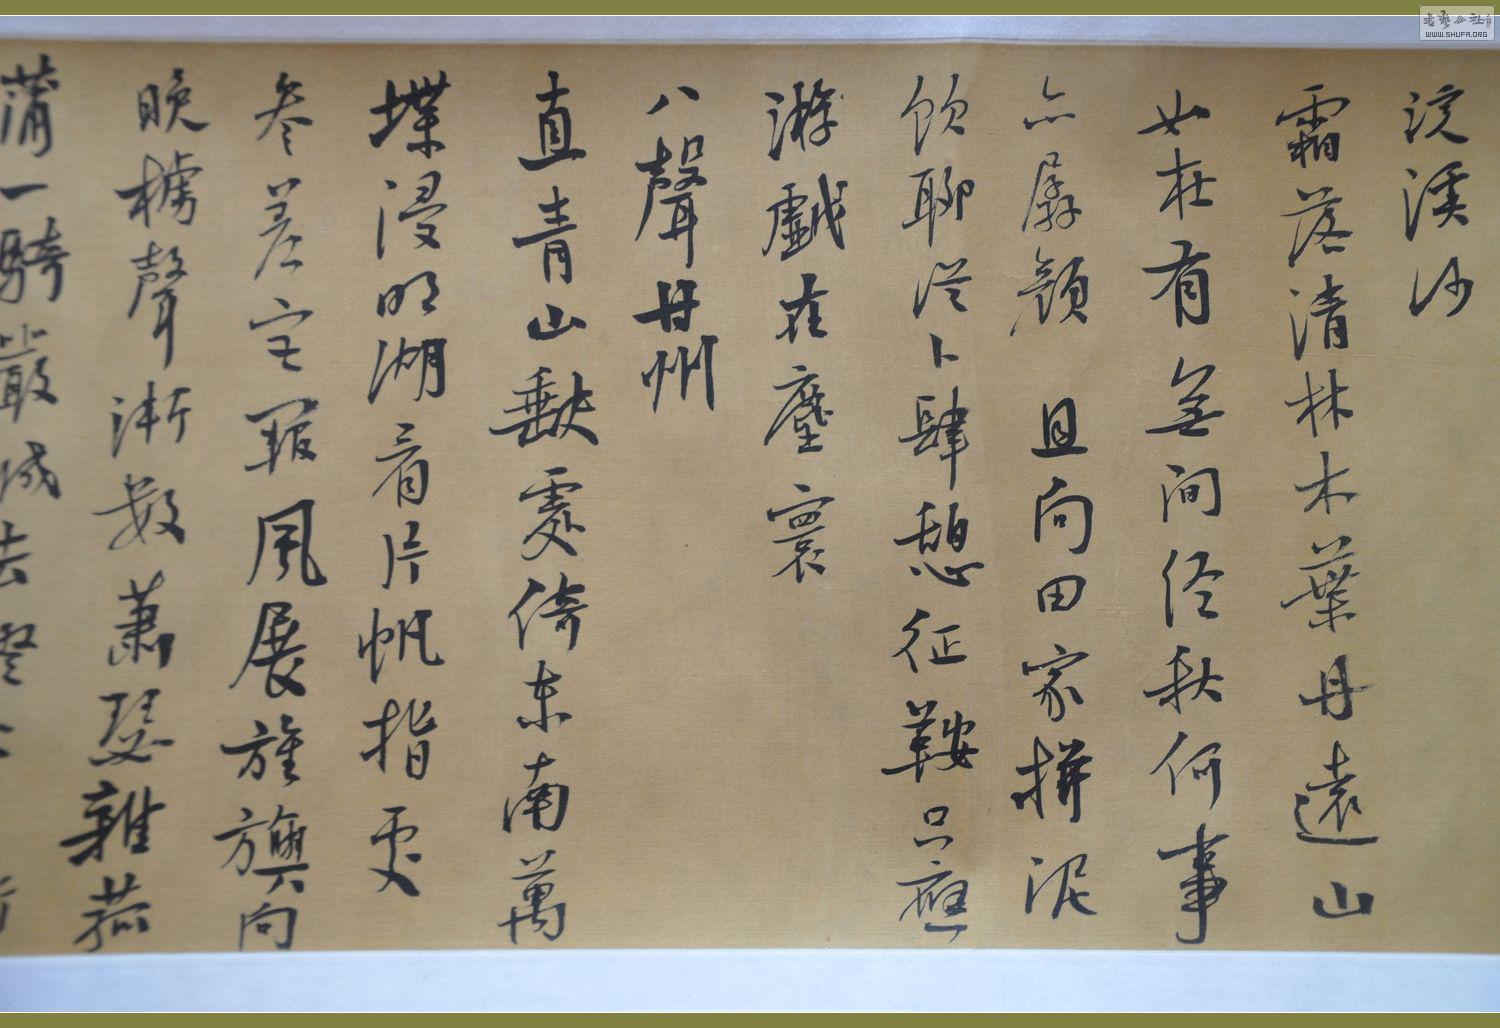 浣溪沙
霜落清林木葉丹遠山
如在有無間経秋何事
亦孱顏 且向田家拚泥
飲聊從卜肆憩征鞍只應
游戲在塵寰
八聲甘州
直青山缺處倚東南萬
堞浸明湖看片帆指處
參差宮觀風展旌旗向
晚檣聲漸數蕭瑟雜菰
蒲一騎嚴城去
WWW.SHUFA.ORG